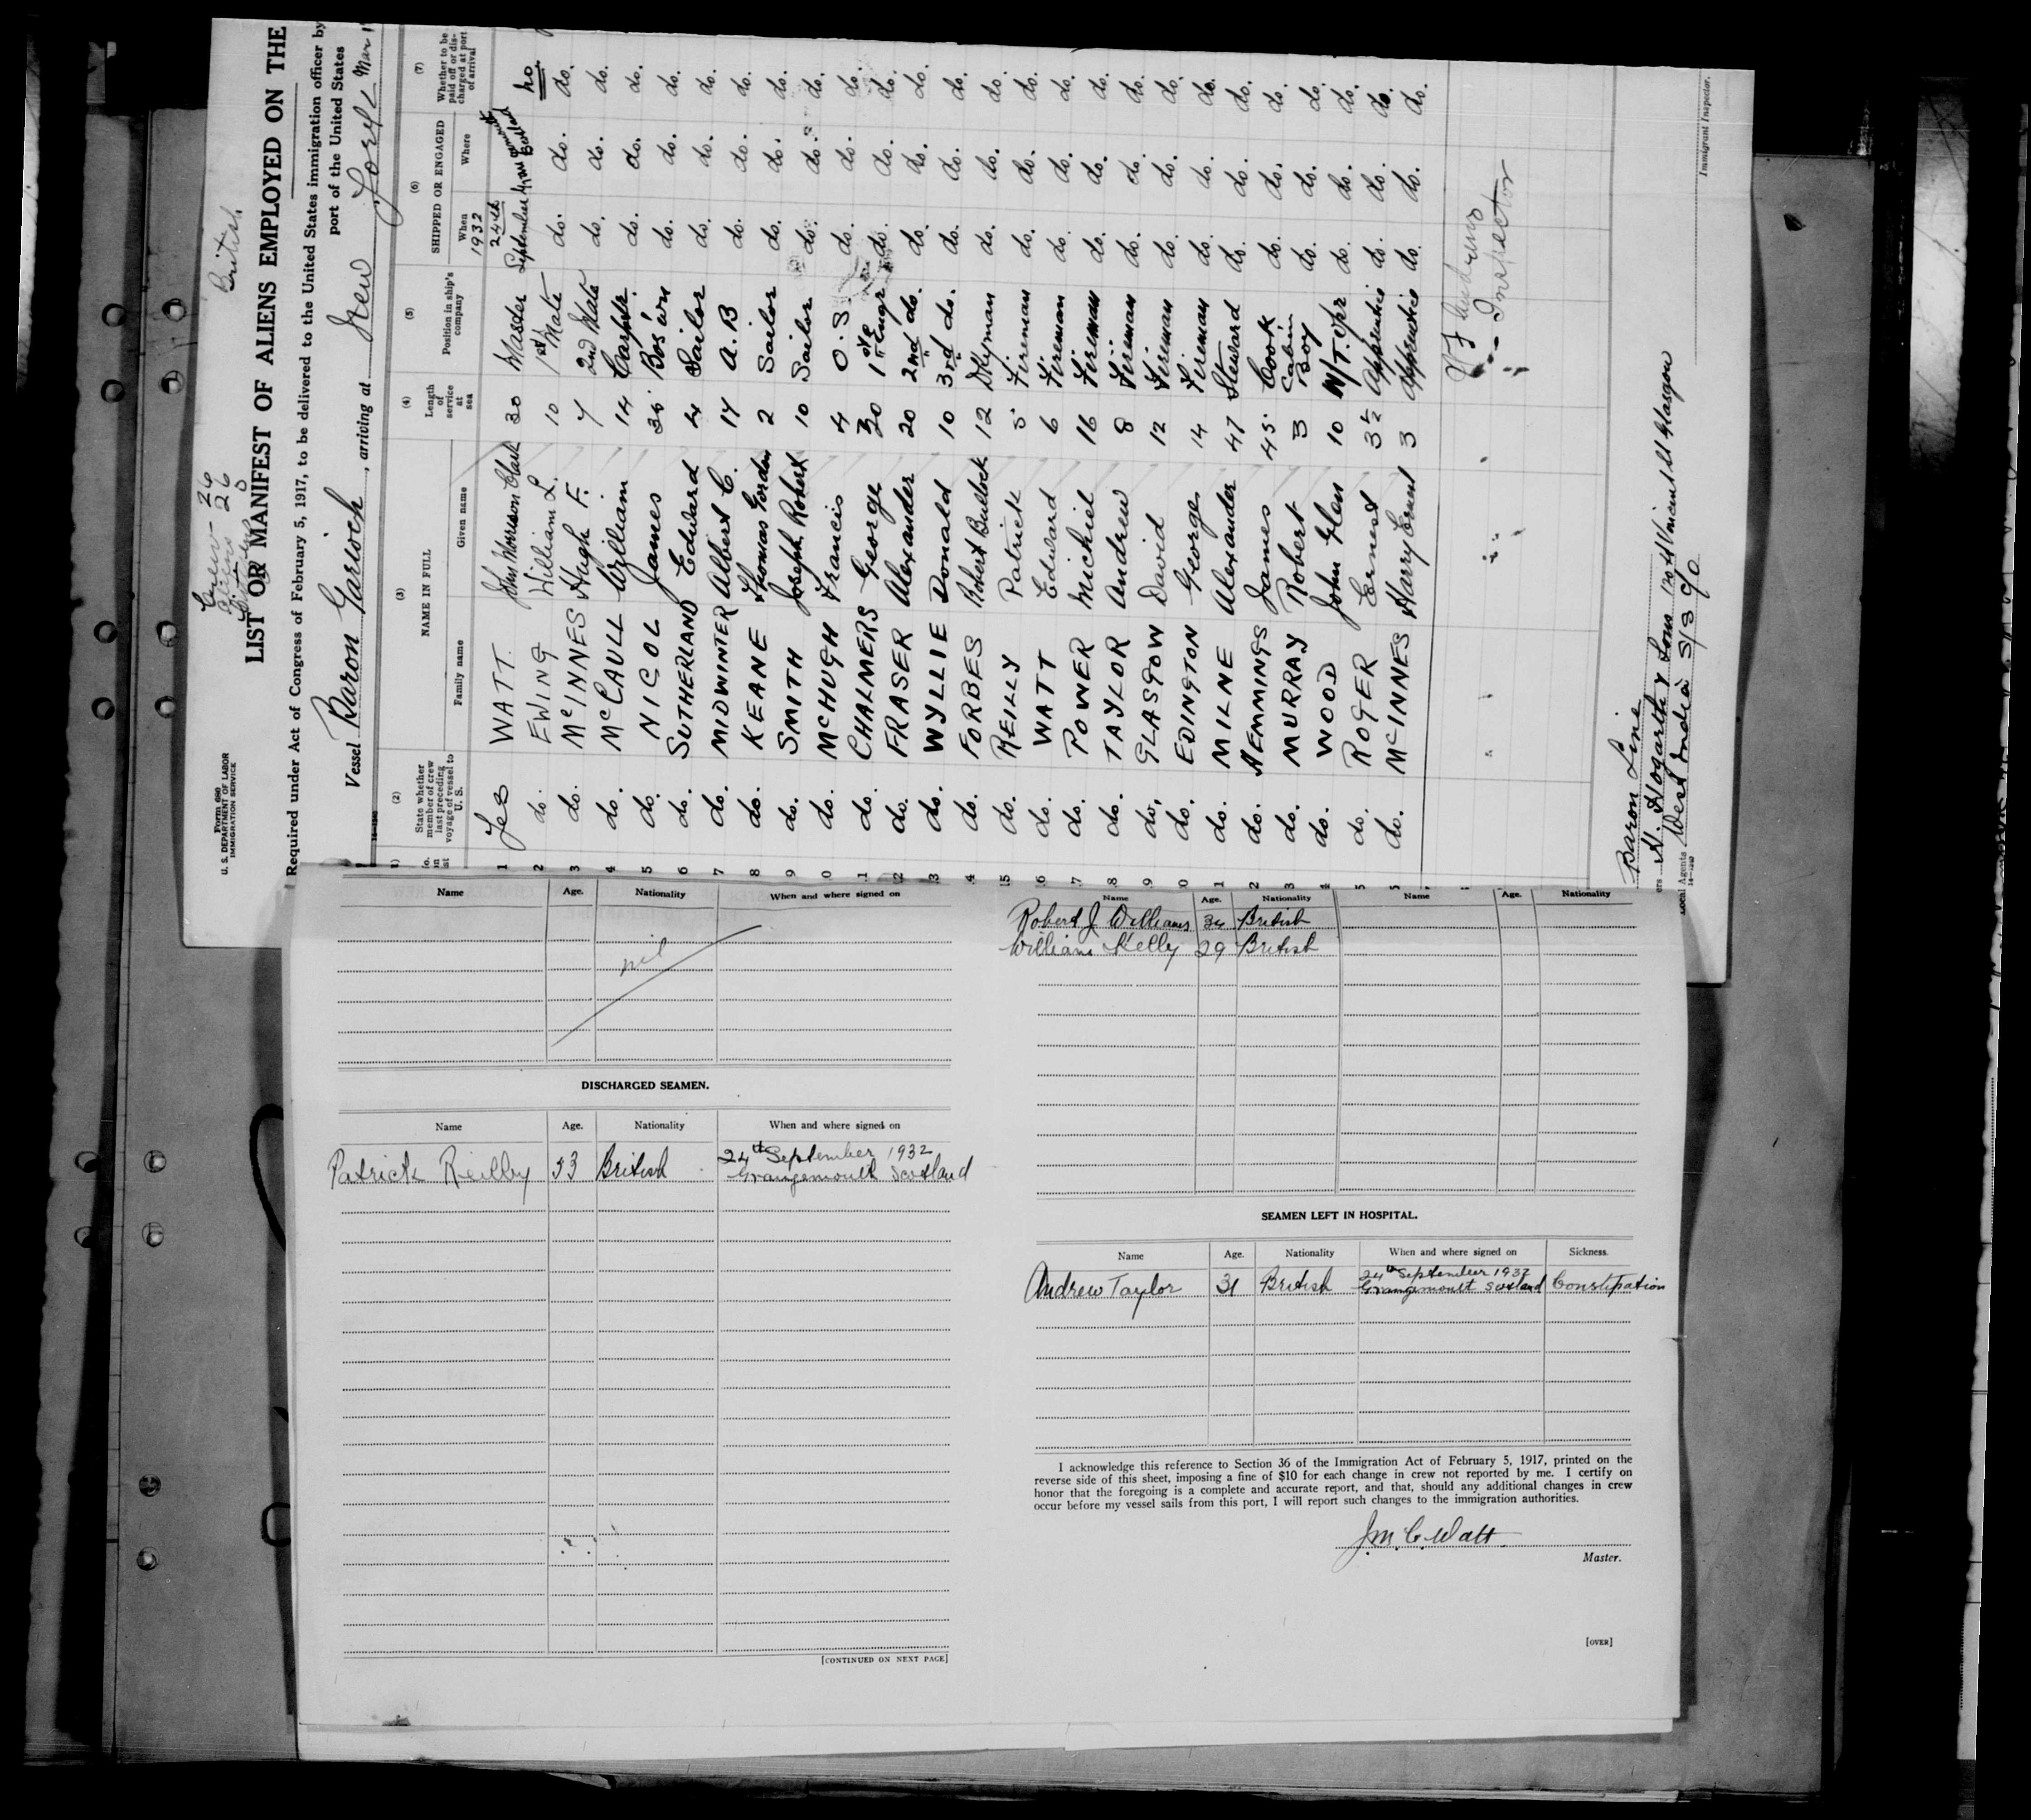 Form 680
U. S. DEPARTMENT OF LABOR
IMMIGRATION SERVICE
Crew 26
Aliens 26
British
LIST OR MANIFEST OF ALIENS EMPLOYED ON THE
Required under Act of Congress of February 5, 1917, to be delivered to the United States immigration officer by
port of the United States
Vessel Baron Garioch, arriving at New York Mar 1
(2) (3) (4) (5) (6) (7)
State whether member of crew last preceding voyage of vessel to U. S. NAME IN FULL Length of service at sea Position in ship's company SHIPPED OR ENGAGED Whether to be paid off or discharged at port of arrival
Family name Given name When Where
1932
1 Yes WATT John Morrison Clark 30 Master 24th September Grangemouth Scotland no
2 do. EWING William L. 10 1st Mate do. do. do.
3 do. McINNES Hugh F. 7 2nd Mate do. do. do.
4 do. McCAULL William 14 Carptr. do. do. do.
5 do. NICOL James 36 Bos'un do. do. do.
6 do. SUTHERLAND Edward 4 Sailor do. do. do.
7 do. MIDWINTER Albert C. 14 A.B do. do. do.
8 do. KEANE Thomas Gordon 2 Sailor do. do. do.
9 do. SMITH Joseph Robert 10 Sailor do. do. do.
0 do. McHUGH Francis 4 O.S. do. do. do.
1 do. CHALMERS George 30 1st Engr do. do. do.
2 do. FRASER Alexander 20 2nd do. do. do. do.
3 do. WYLLIE Donald 10 3rd do. do. do. do.
4 do. FORBES Robert Bullock 12 Dkyman do. do. do.
15 do. REILLY Patrick 5 Fireman do. do. do.
6 do. WATT Edward 6 Fireman do. do. do.
7 do. POWER Michiel 16 Fireman do. do. do.
8 do. TAYLOR Andrew 8 Fireman do. do. do.
9 do. GLASGOW David 12 Fireman do. do. do.
0 do. EDINGTON George 14 Fireman do. do. do.
1 do. MILNE Alexander 47 Steward do. do. do.
2 do. HEMMINGS James 45 Cook do. do. do.
3 do. MURRAY Robert 3 Cabin Boy do. do. do.
4 do. WOOD John Glen 10 W/T. Opr do. do. do.
5 do. ROGER Ernest 3½ Apprentice do. do. do.
do. McINNES Harry Ernest 3 Apprentice do. do. do.
Inspector
Baron Line
H. Hogarth & Sons 120 St Vincent St Glasgow
Local Agents West India S/S Co
Immigrant Inspector.
Name Age. Nationality When and where signed on
nil
DISCHARGED SEAMEN.
Name Age. Nationality When and where signed on
Patrick Reilly 53 British 24th September 1932
Grangemouth Scotland
[CONTINUED ON NEXT PAGE]
Name Age. Nationality Name Age. Nationality
Robert J Williams 34 British
William Kelly 29 British
SEAMEN LEFT IN HOSPITAL.
Name Age. Nationality When and where signed on Sickness.
Andrew Taylor 31 British 24th September 1932 Grangemouth Scotland Constipation
I acknowledge this reference to Section 36 of the Immigration Act of February 5, 1917, printed on the
reverse side of this sheet, imposing a fine of $10 for each change in crew not reported by me. I certify on
honor that the foregoing is a complete and accurate report, and that, should any additional changes in crew
occur before my vessel sails from this port, I will report such changes to the immigration authorities.
J. M. C. Watt
Master.
[OVER]